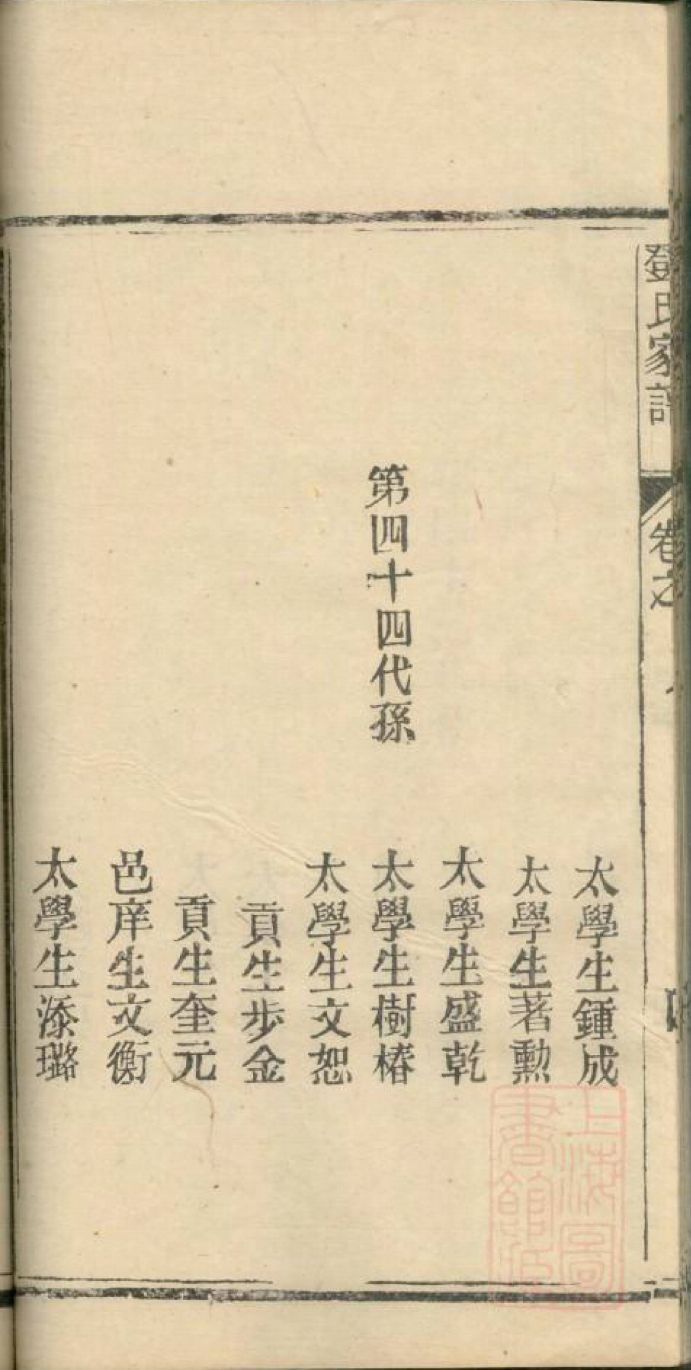 鄧氏家譜
卷之
太學生鍾成
太學生著勳
太學生盛乾
第四十四代孫
太學生樹椿
太學生文恕
貢生步金
貢生奎元
邑庠生文衡
太學生添璐
上海圖書館藏